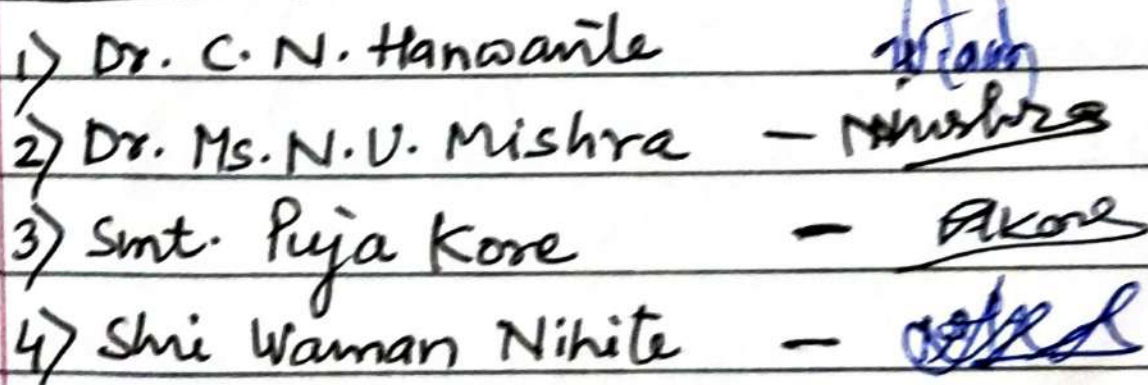 1) Dr. C. N. Hanwante
2) Dr. Ms. N.U. Mishra - Nmishra
3) Smt. Puja Kore - PKore
4) Shri Waman Nihite -